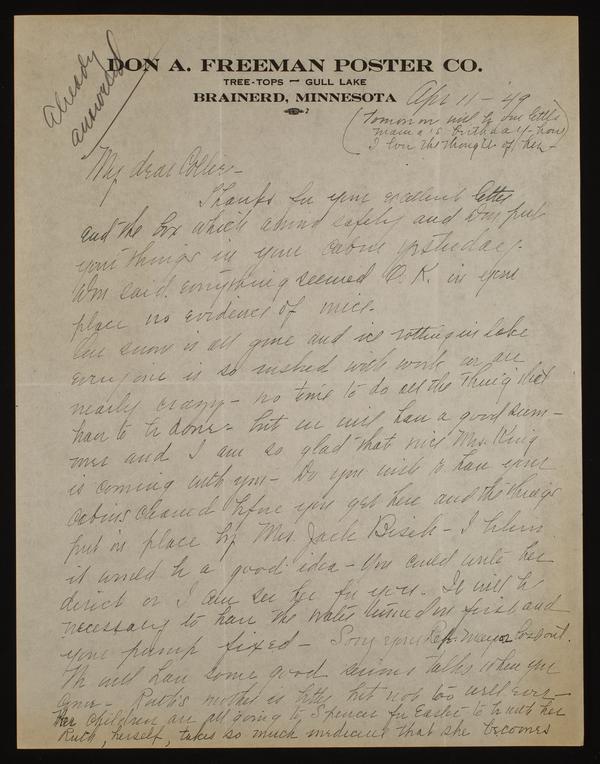 Already
answered
DON A. FREEMAN POSTER CO.
TREE-TOPS — GULL LAKE
BRAINERD, MINNESOTA
Apr 11 - '49
(Tomorrow will be our little
mama's birthday - how
I love the thought of her -
My dear
Thanks for your excellent letter
and the box which arrived safely and Wm put
your things in your cabin yesterday.
Wm said everything seemed O.K. in your
place no evidence of mice.
Our snow is all gone and ice rotting in Lake
everyone is so rushed with work we are
nearly crazy - no time to do all the things that
have to be done - but we will have a good sum-
mer and I am so glad that nice Mrs. King
is coming with you - Do you wish to have your
cabins cleaned before you get here and the things
put in place by Mrs. Jack - I believe
it would be a good idea - You could write her
direct or I can see her for you. It will be
necessary to have the water turned on first and
your pump fixed - Sorry your Rep. Mayor lost out.
We will have some good talks when you
come - Ruth's mother is better but not too well ever -
Her children are all going to Spencer for Easter to be with her
Ruth, herself, takes so much medicine that she becomes